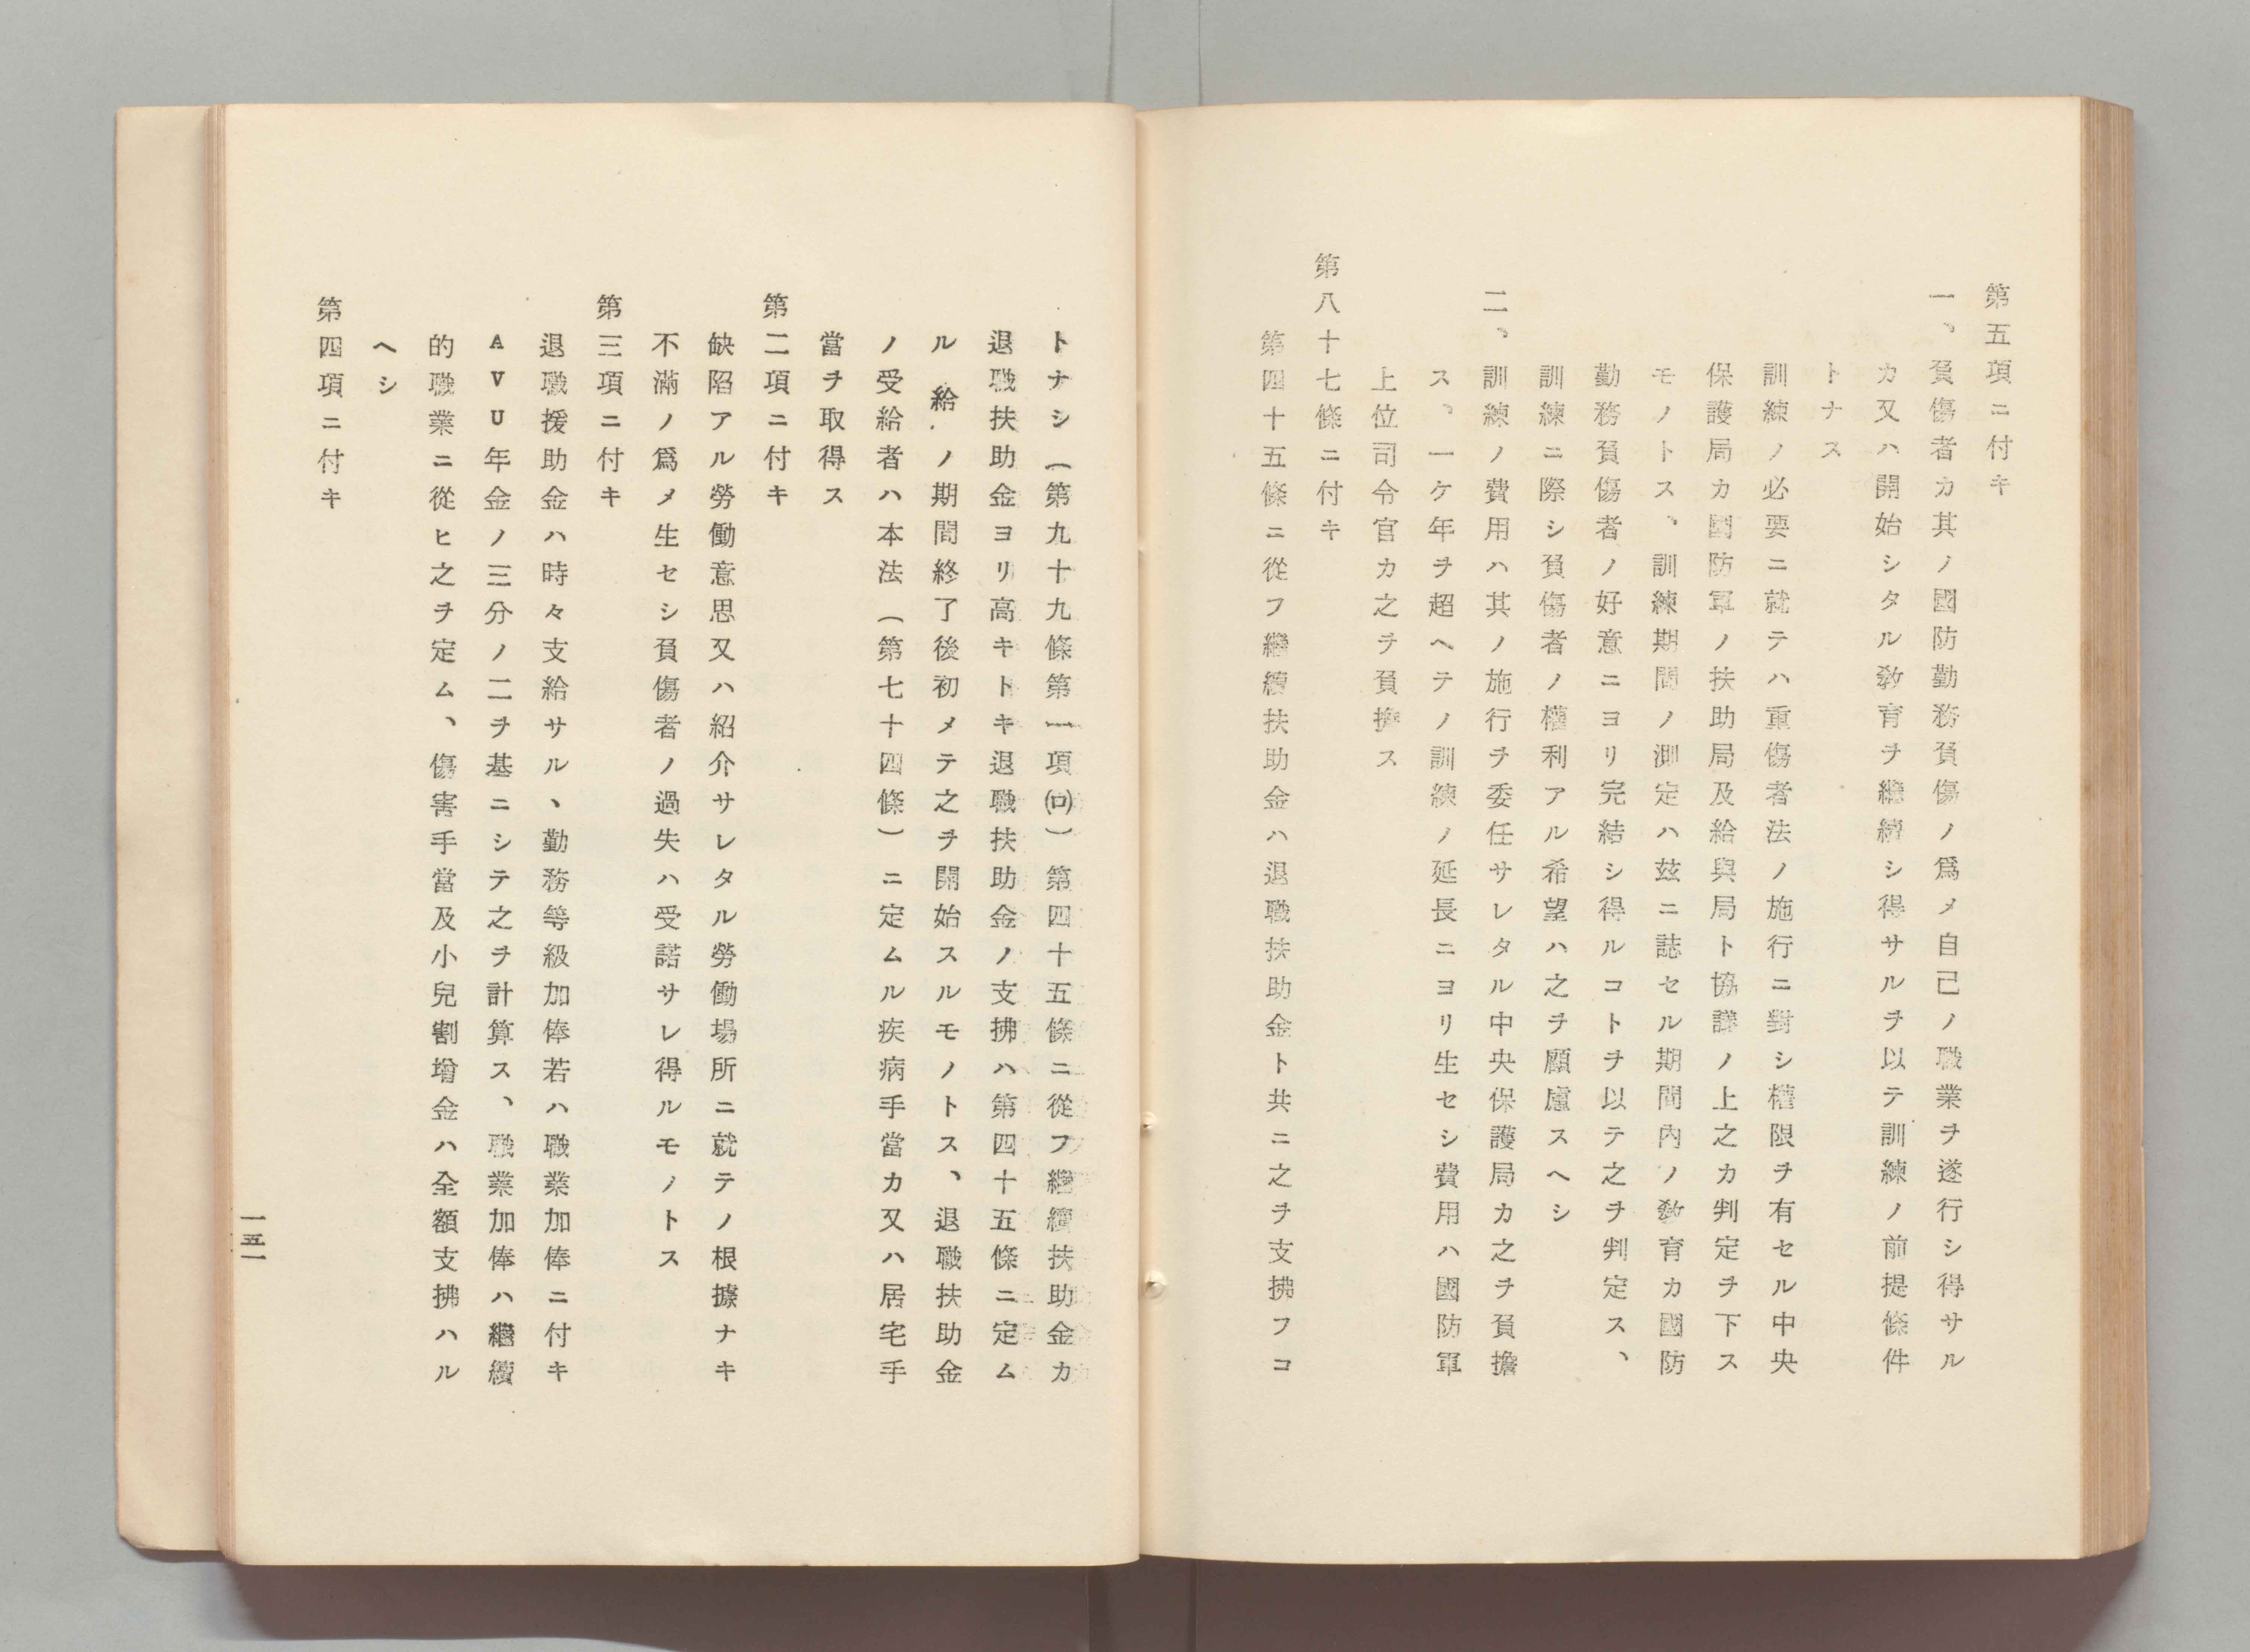 第五項ニ付キ
一、負傷者カ其ノ國防勤務負傷ノ爲メ自己ノ職業ヲ遂行シ得サル
カ又ハ開始シタル教育ヲ繼續シ得サルヲ以テ訓練ノ前提條件
トナス
訓練ノ必要ニ就テハ重傷者法ノ施行ニ對シ權限ヲ有セル中央
保護局カ國防軍ノ扶助局及給與局ト協議ノ上之カ判定ヲ下ス
モノトス、訓練期間ノ測定ハ玆ニ誌セル期間內ノ教育カ國防
勤務負傷者ノ好意ニヨリ完結シ得ルコトヲ以テ之ヲ判定ス、
訓練ニ際シ負傷者ノ權利アル希望ハ之ヲ顧慮スヘシ
二、訓練ノ費用ハ其ノ施行ヲ委任サレタル中央保護局カ之ヲ負擔
ス、一ケ年ヲ超ヘテノ訓練ノ延長ニヨリ生セシ費用ハ國防軍
上位司令官カ之ヲ負擔ス
第八十七條ニ付キ
第四十五條ニ從フ繼續扶助金ハ退職扶助金ト共ニ之ヲ支拂フコ
トナシ（第九十九條第一項(ロ)）第四十五條ニ從フ繼續扶助金カ
退職扶助金ヨリ高キトキ退職扶助金ノ支拂ハ第四十五條ニ定ム
ル給ノ期間終了後初メテ之ヲ開始スルモノトス、退職扶助金
ノ受給者ハ本法（第七十四條）ニ定ムル疾病手當カ又ハ居宅手
當ヲ取得ス
第二項ニ付キ
缺陷アル勞働意思又ハ紹介サレタル勞働場所ニ就テノ根據ナキ
不滿ノ爲メ生セシ負傷者ノ過失ハ受諾サレ得ルモノトス
第三項ニ付キ
退職援助金ハ時々支給サル、勤務等級加俸若ハ職業加俸ニ付キ
AVU年金ノ三分ノ二ヲ基ニシテ之ヲ計算ス、職業加俸ハ繼續
的職業ニ從ヒ之ヲ定ム、傷害手當及小兒割增金ハ全額支拂ハル
ヘシ
第四項ニ付キ
一五一